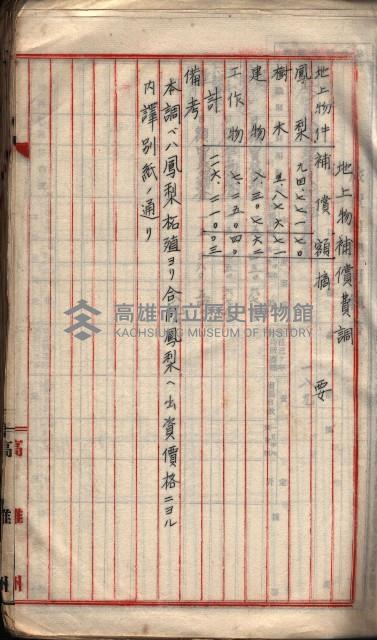 地上物補償費調
地上物件 補償額 摘要
鳳梨 九四、七七一七〇
樹木 五、八七六七一
建物 八、三〇七六二
工作物 七、二五四〇〇
計 一一六、二一〇〇三
備考
本調ベハ鳳梨拓殖ヨリ合同鳳梨ヘ出資價格ニヨル
内譯別紙ノ通リ
高雄州
高雄州
高雄市立歷史博物館
KAOHSIUNG MUSEUM OF HISTORY